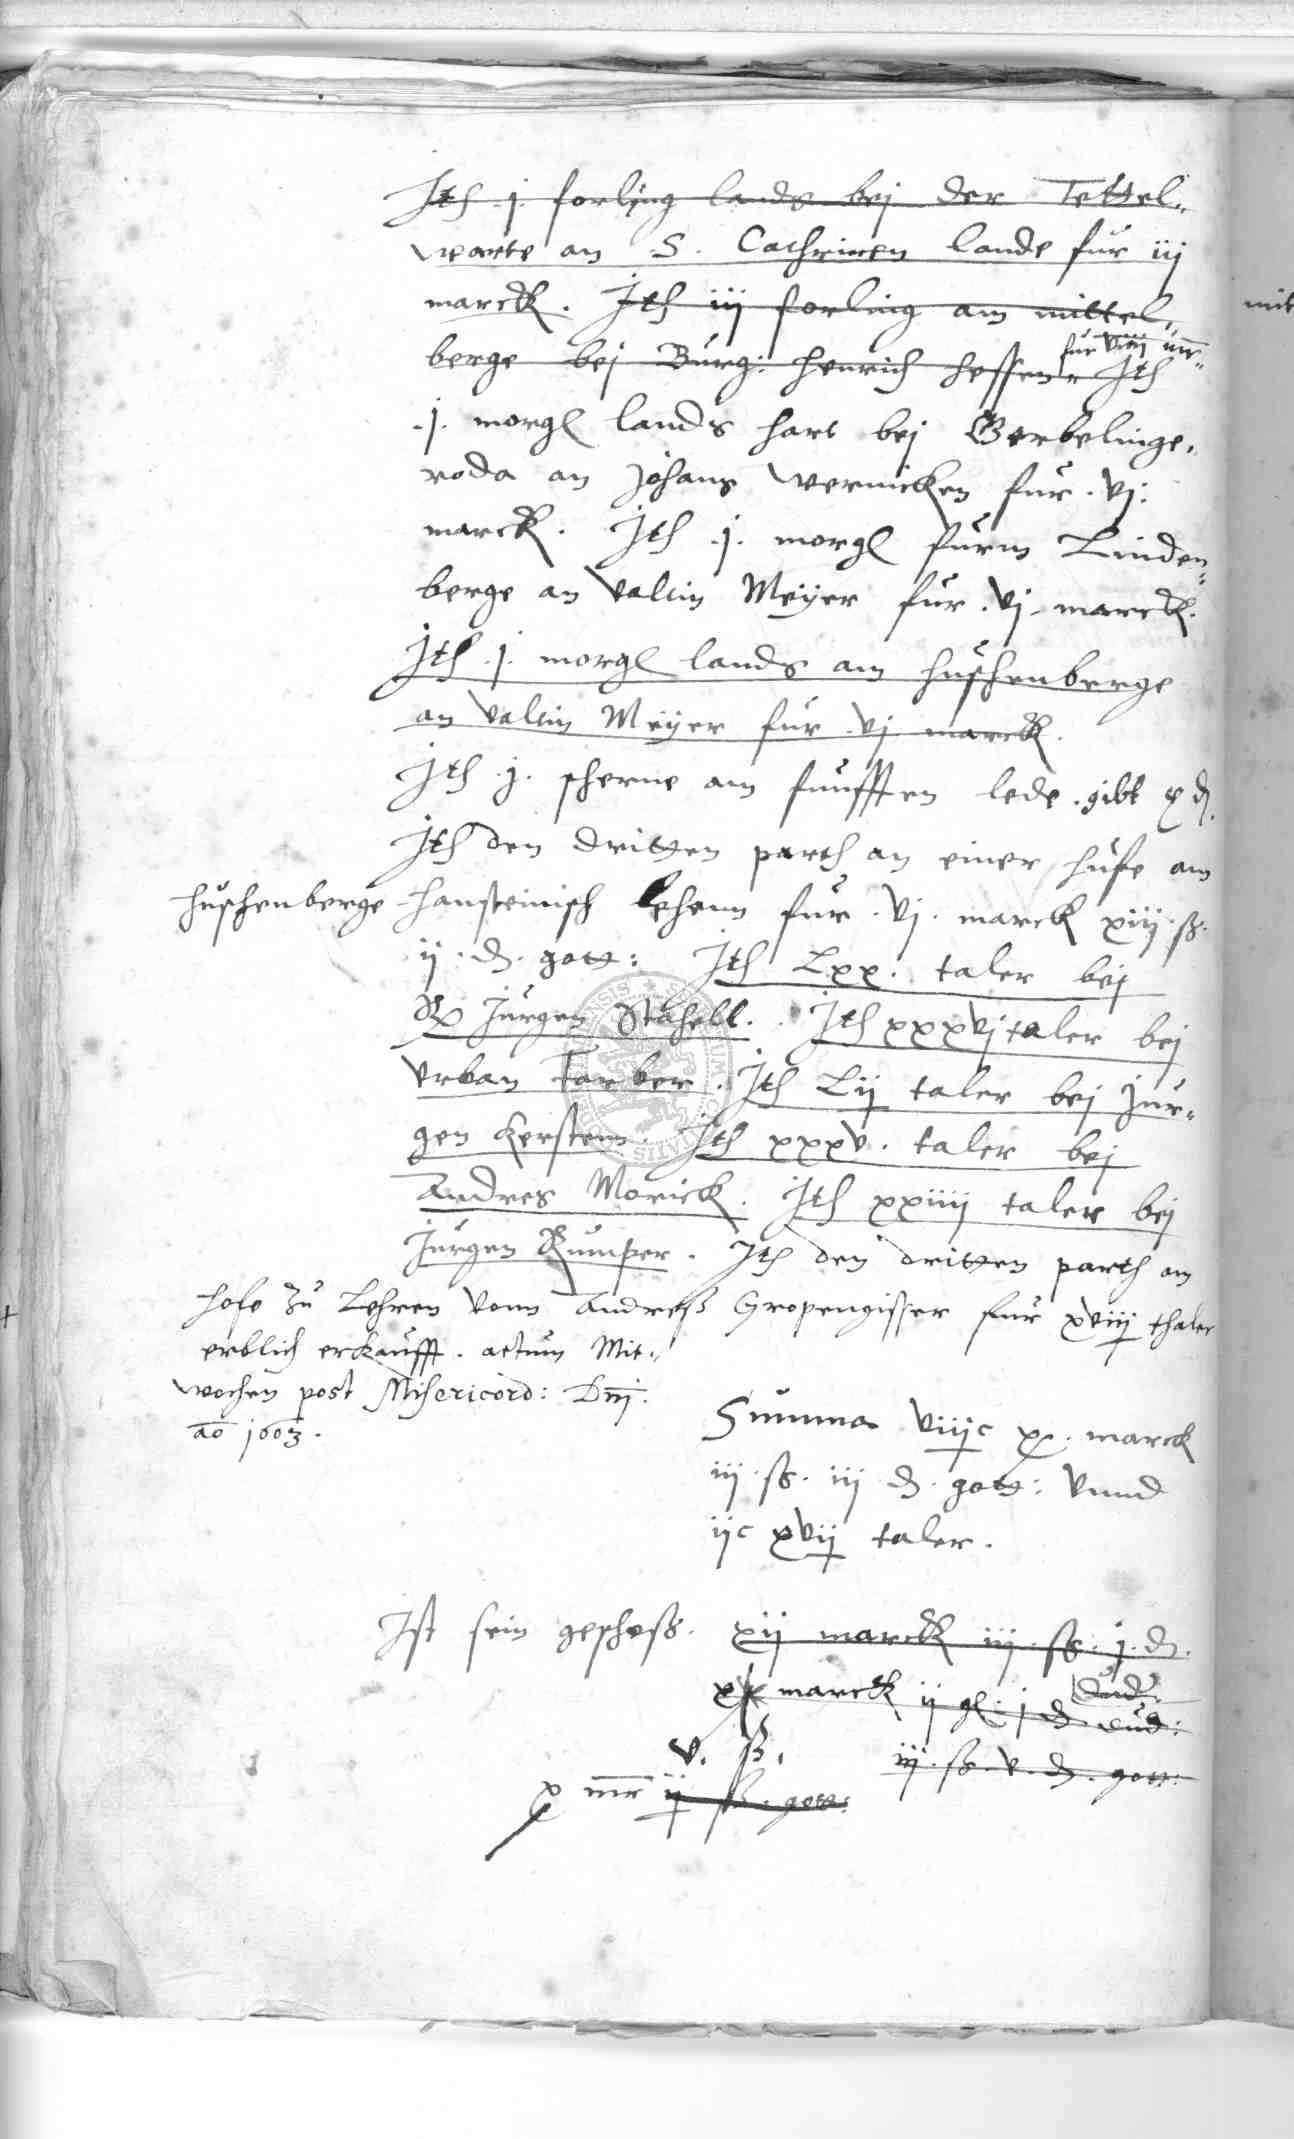 Jth j. forling lands bej der Tettel-
warte an S. Cathrinen lande fur iij
marck. Jth iij forling am mittel-
berge bej Burg: Henrich Hessen fur viiij mr. Jth
.j. morgl lands hart bej Gerbelinge-
roda an Johans wernicken fur .vj.
marck. Jth .j. morgl furm Linden-
berge an Valtin Meijer fur .vj. marck.
Jth .j. morgl lands am Huschenberge
an Valtin Meijer fur .vj marck.
Jth .j. scherne am funfften lede . gibt x d.
Jth den dritten parth an einer hufe am
Huschenberge Hansteinisch lehenn fur .vj. marck xiij ß.
ij . d. gott: Jth Lxx. taler bej
Jurgen Stahell. Jth xxxvj taler bej
Vrban Farber. Jth Lij taler bej Jur-
gen Kersten. Jth xxxv. taler bej
Andres Morick. Jth xxiiij taler bej
Jurgen Rumper. Jth den dritten parth am
hofe zu Lehren vonn Andreß Gropengisser fur xviij thaler
erblich erkaufft. actum Mit-
wochen post Misericord: Dni.
ao 1603.
Summa viiijc xx. marck
iij . ß. iij d. gott: vnnd
ijc xvij taler.
Ist sein geschoß. xij marck iij . ß. j. d.
marck ij gl: j d dud:
v. ß. iij . ß. v. d. gott:
x mr ij ß. gott:
mit